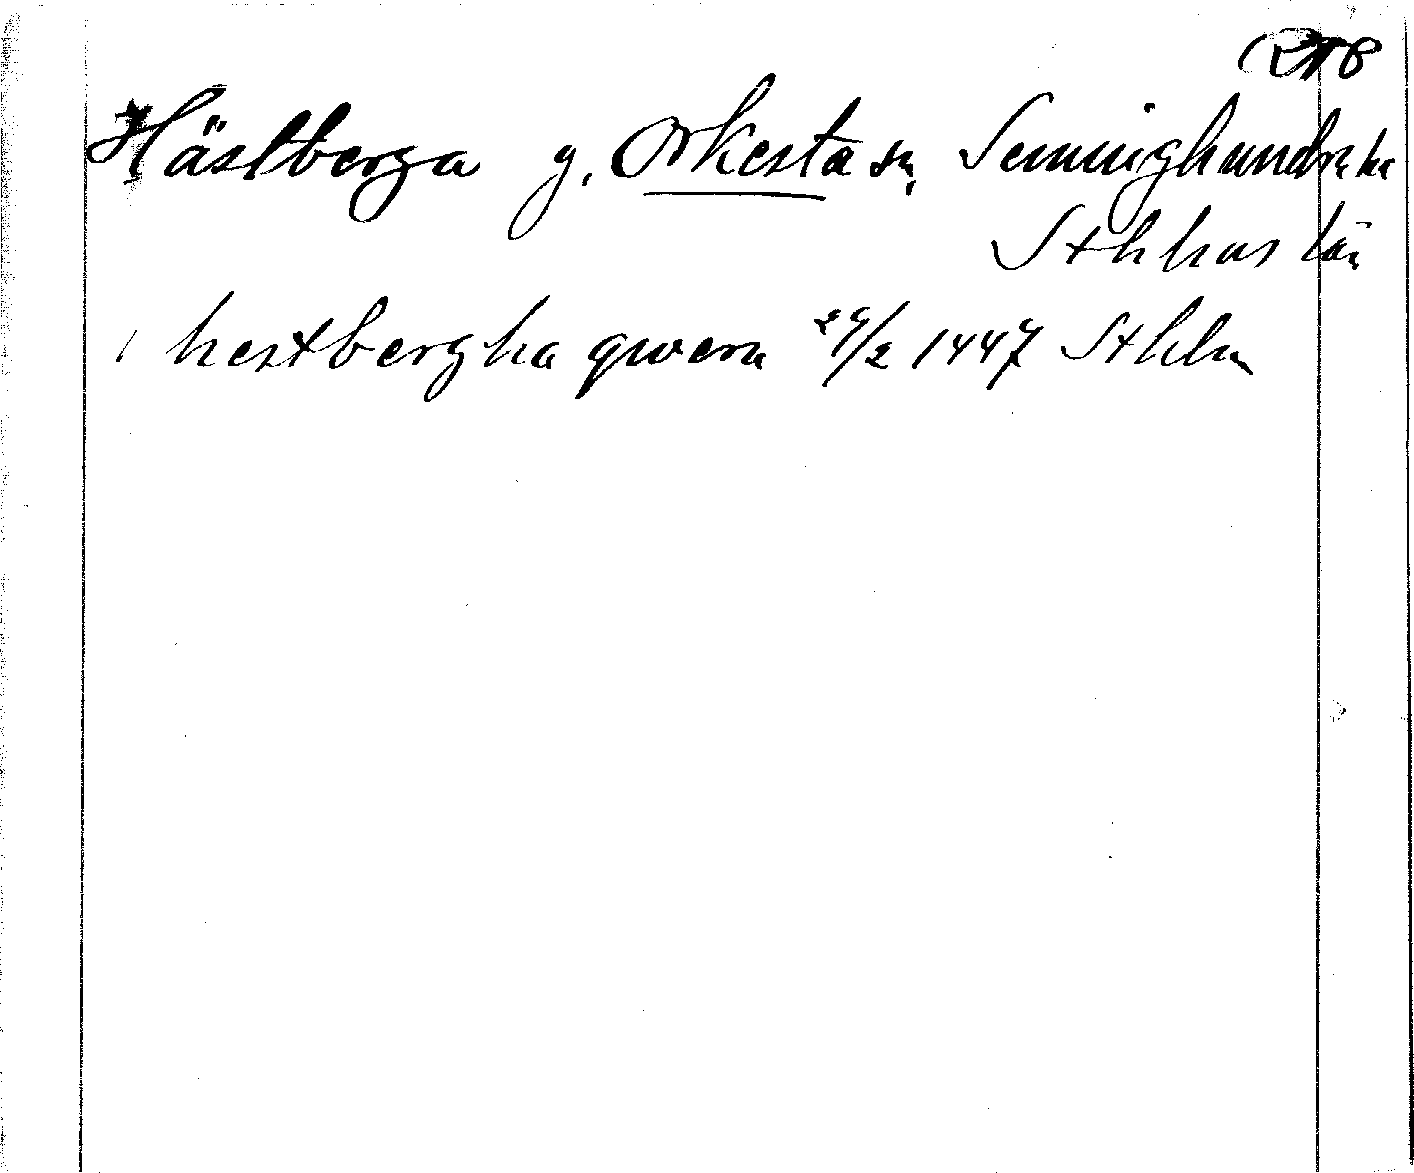 Hästberga g. Orkesta sn, Seminghundra hd
Sthlms län
i hestbergha qwern 29/2 1447 Sthlm